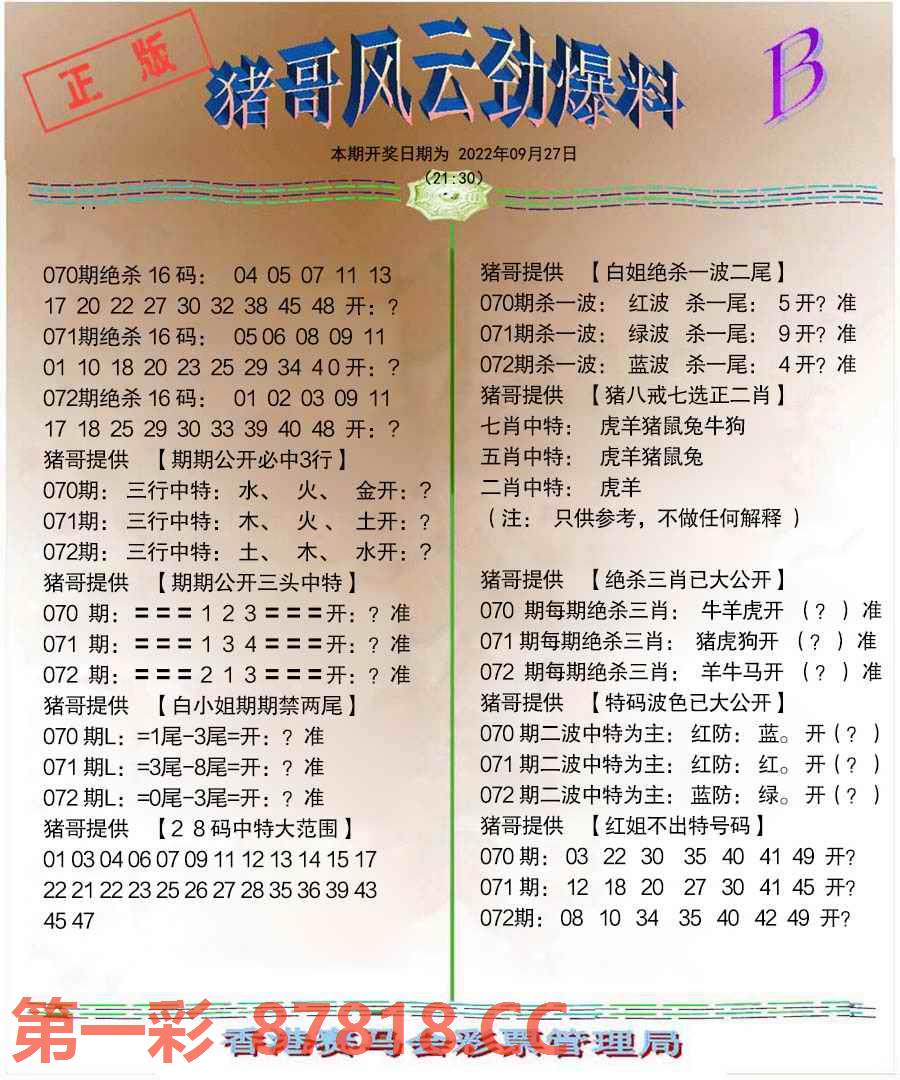 正版
猪哥风云劲爆料
B
本期开奖日期为 2022年09月27日
(21:30)
070期绝杀16码： 04 05 07 11 13
17 20 22 27 30 32 38 45 48 开：?
071期绝杀16码： 05 06 08 09 11
01 10 18 20 23 25 29 34 40 开：?
072期绝杀16码： 01 02 03 09 11
17 18 25 29 30 33 39 40 48 开：?
猪哥提供 【期期公开必中3行】
070期： 三行中特： 水、 火、 金开：?
071期： 三行中特： 木、 火、 土开：?
072期： 三行中特： 土、 木、 水开：?
猪哥提供 【期期公开三头中特】
070 期：===123===开：? 准
071 期：===134===开：? 准
072 期：===213===开：? 准
猪哥提供 【白小姐期期禁两尾】
070期L：=1尾-3尾=开：? 准
071期L：=3尾-8尾=开：? 准
072期L：=0尾-3尾=开：? 准
猪哥提供 【28码中特大范围】
01 03 04 06 07 09 11 12 13 14 15 17
22 21 22 23 25 26 27 28 35 36 39 43
45 47
猪哥提供 【白姐绝杀一波二尾】
070期杀一波： 红波 杀一尾： 5开? 准
071期杀一波： 绿波 杀一尾： 9开? 准
072期杀一波： 蓝波 杀一尾： 4开? 准
猪哥提供 【猪八戒七选正二肖】
七肖中特： 虎羊猪鼠兔牛狗
五肖中特： 虎羊猪鼠兔
二肖中特： 虎羊
（注： 只供参考，不做任何解释）
猪哥提供 【绝杀三肖已大公开】
070 期每期绝杀三肖： 牛羊虎开 （?）准
071期每期绝杀三肖： 猪虎狗开 （?）准
072 期每期绝杀三肖： 羊牛马开（?）准
猪哥提供 【特码波色已大公开】
070期二波中特为主：红防：蓝。开(?)
071期二波中特为主：红防：红。开(?)
072期二波中特为主：蓝防：绿。开(?)
猪哥提供 【红姐不出特号码】
070期： 03 22 30 35 40 41 49 开?
071期： 12 18 20 27 30 41 45 开?
072期： 08 10 34 35 40 42 49 开?
第一彩 87818.CC
香港赛马会彩票管理局